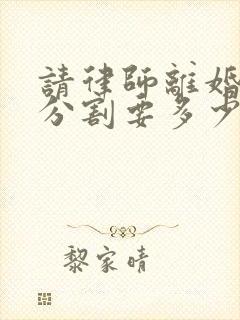 請律師離婚
分割要多少
黎家晴